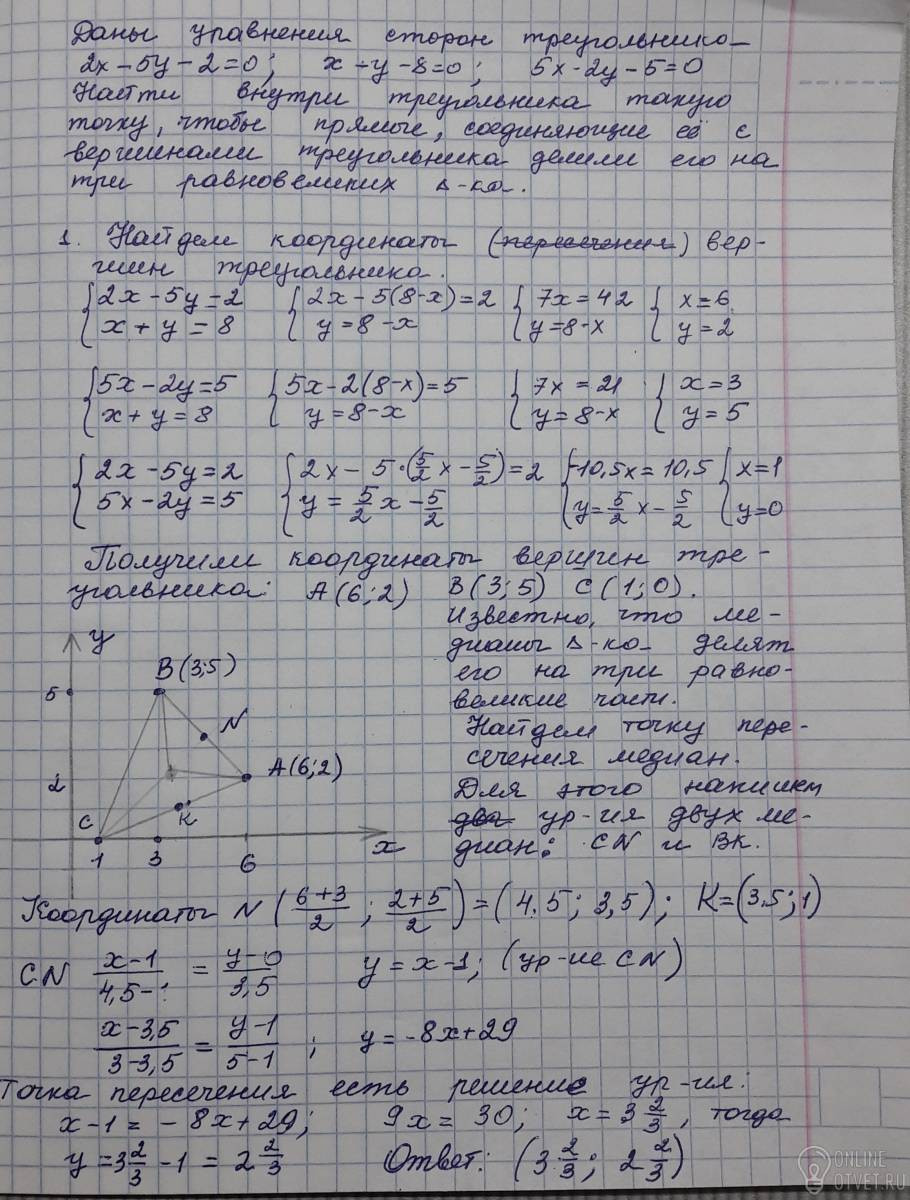 Даны уравнения сторон треугольника
2x-5y-2=0; x+y-8=0; 5x-2y-5=0
Найти внутри треугольника такую
точку, чтобы прямые, соединяющие её с
вершинами треугольника делили его на
три равновеликих Δ-ка.
1. Найдем координаты (пересечения) вер-
шин треугольника.
{2x-5y=2 {2x-5(8-x)=2 {7x=42 {x=6
{x+y=8 {y=8-x {y=8-x {y=2
{5x-2y=5 {5x-2(8-x)=5 {7x=21 {x=3
{x+y=8 {y=8-x {y=8-x {y=5
{2x-5y=2 {2x-5·(5/2x-5/2)=2 {-10,5x=10,5 {x=1
{5x-2y=5 {y=5/2x-5/2 {y=5/2x-5/2 {y=0
Получили координаты вершин тре-
угольника: A(6;2) B(3;5) C(1;0).
Известно, что ме-
дианы Δ-ка делят
его на три равно-
великие части.
Найдем точку пере-
сечения медиан.
Для этого напишем
два ур-ия двух ме-
диан: CN и BK.
y
B(3;5)
5
N
A(6;2)
2
K
C
1 3 6 x
Координаты N((6+3)/2; (2+5)/2)=(4.5; 3,5); K=(3,5;1)
CN (x-1)/(4,5-1) = (y-0)/3,5 y=x-1; (ур-ие CN)
(x-3,5)/(3-3,5) = (y-1)/(5-1); y=-8x+29
Точка пересечения есть решение ур-ия:
x-1=-8x+29; 9x=30; x=3 2/3, тогда
y=3 2/3-1=2 2/3 Ответ: (3 2/3; 2 2/3)
ONLINE
OTVET.RU